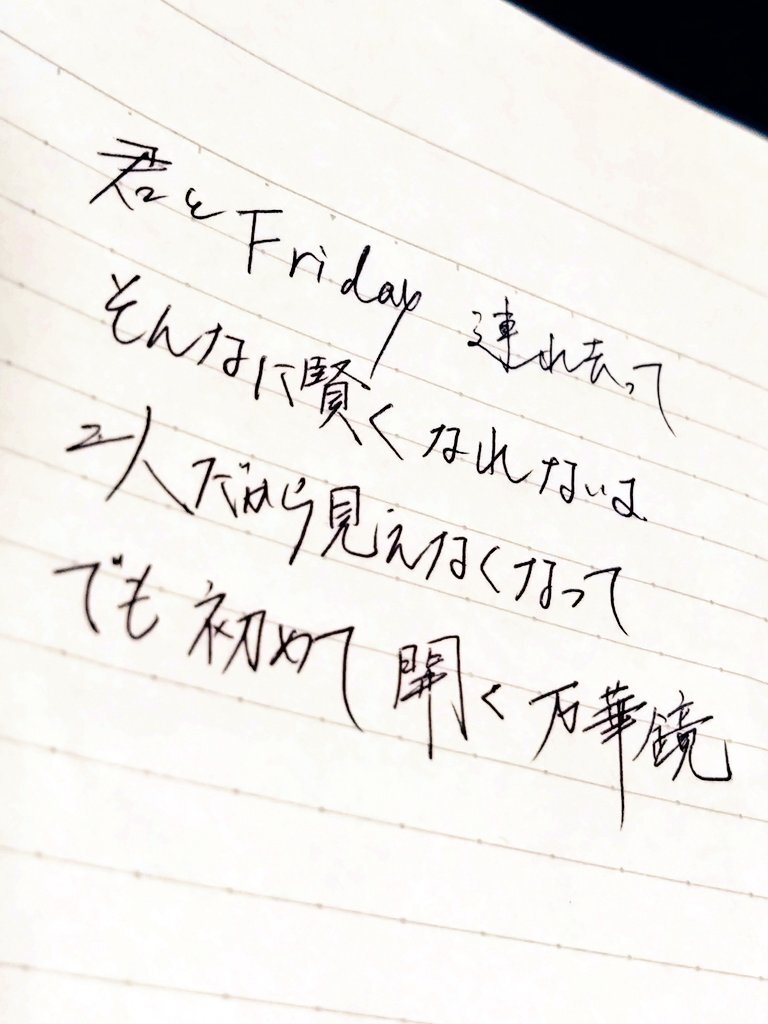 君とFriday 連れ去って
そんなに賢くなれないよ
二人だから見えなくなって
でも初めて開く万華鏡